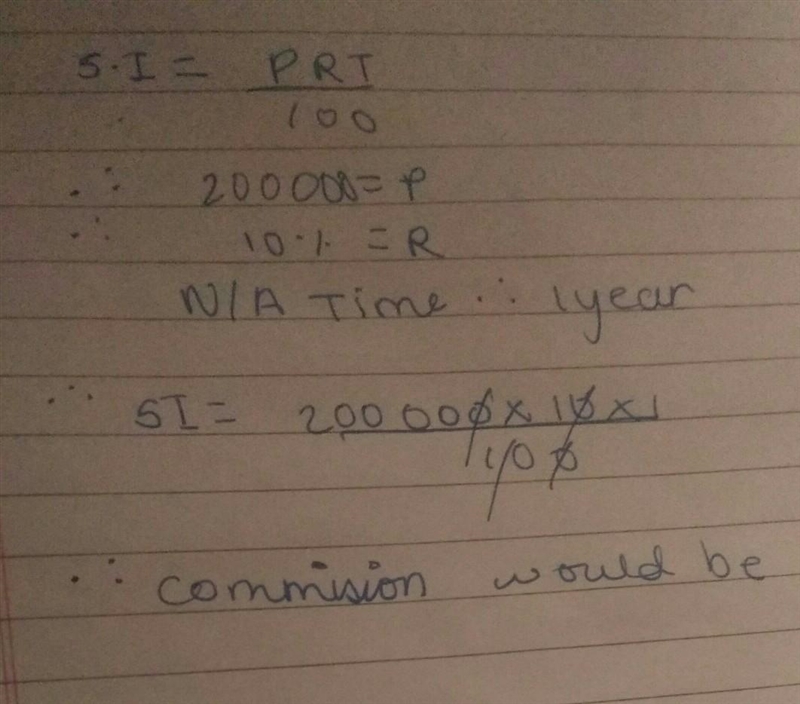 S.I = PRT
100
∴ 200000 = P
∴ 10% = R
N/A Time ∴ 1year
∴ SI = 200000 x 10 x 1
100
∴ commision would be